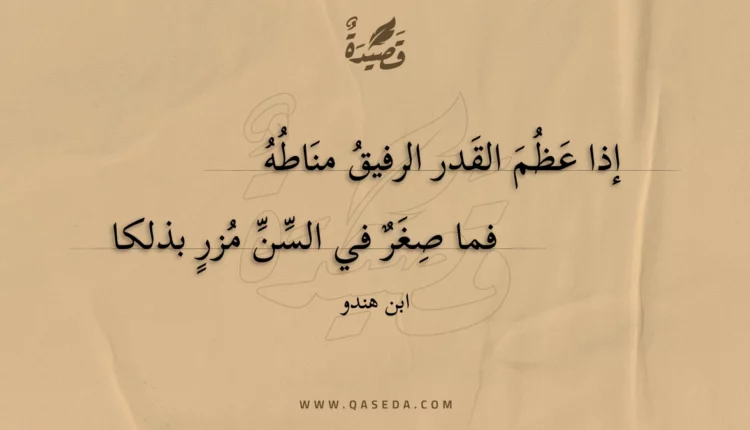 قَصِيدَةٌ
إذا عَظُمَ القَدر الرفيقُ منَاطُهُ
فما صِغَرٌ في السِّنِّ مُزرٍ بذلكا
ابن هندو
WWW.QASEDA.COM